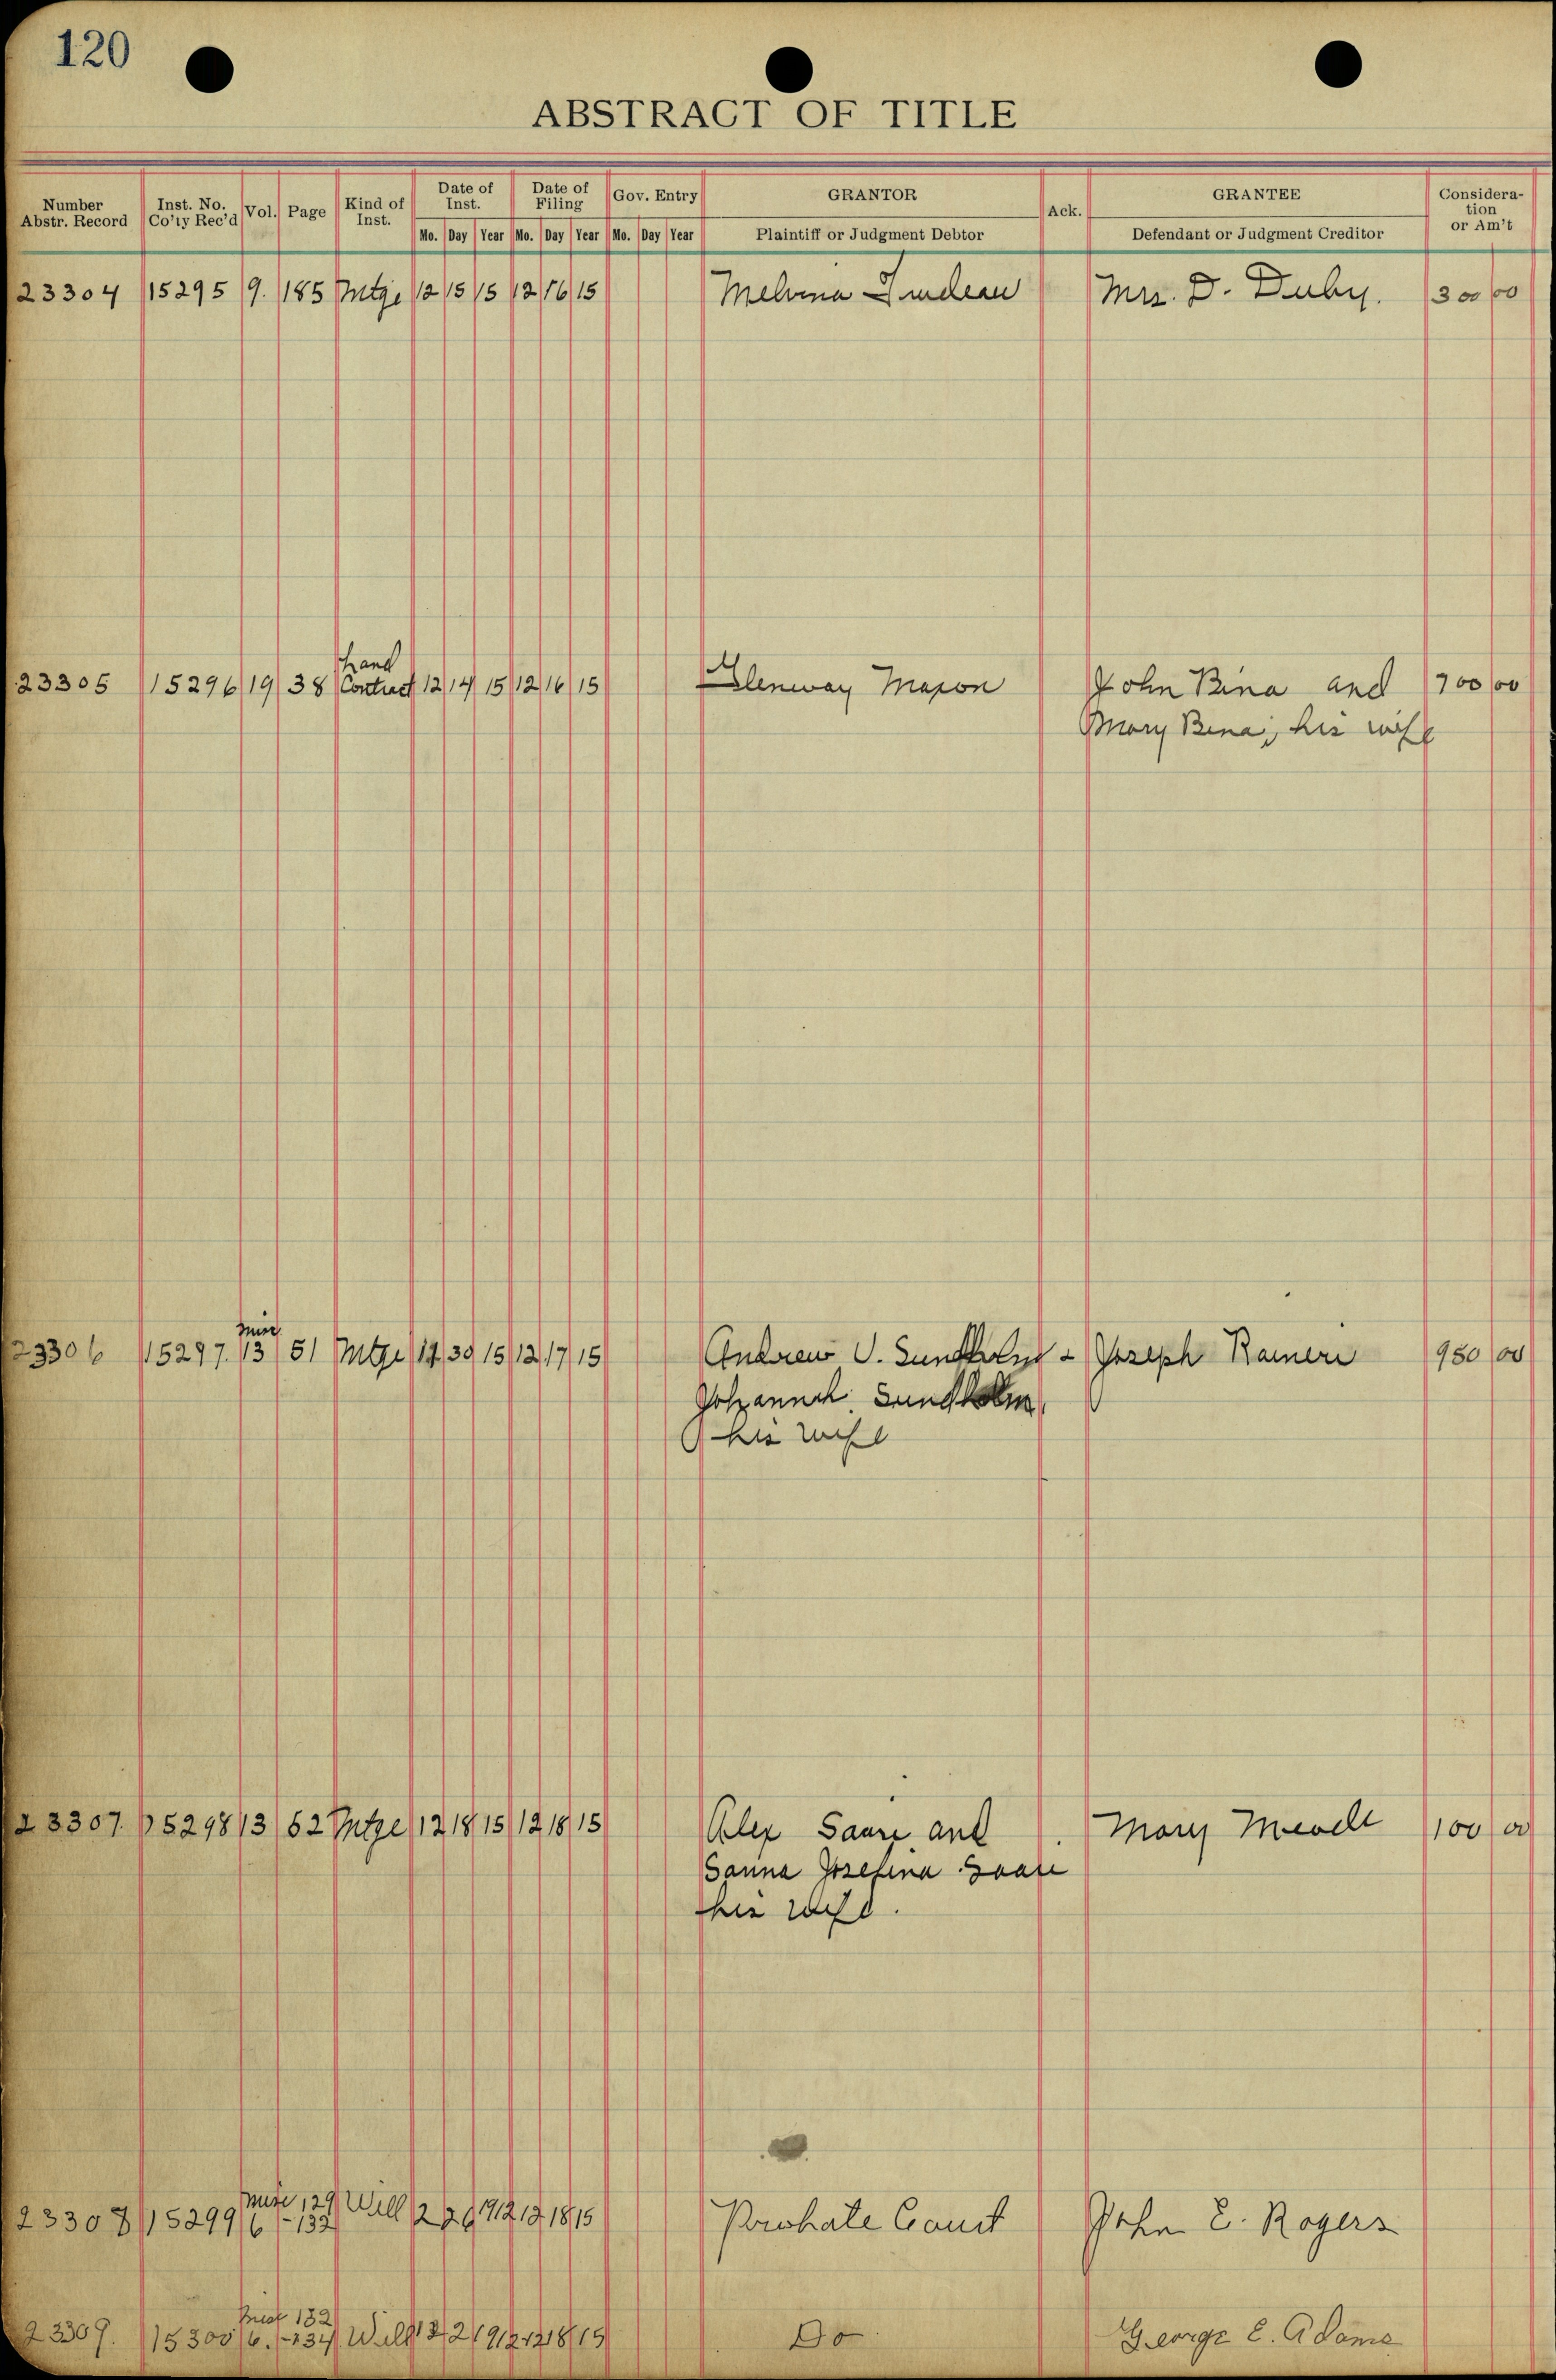 120
ABSTRACT OF TITLE
Number Abstr. Record Inst. No. Co'ty Rec'd Vol. Page Kind of Inst. Date of Inst. Date of Filing Gov. Entry GRANTOR Ack. GRANTEE Consideration or Am't
Mo. Day Year Mo. Day Year Mo. Day Year Plaintiff or Judgment Debtor Defendant or Judgment Creditor
23304 15295 9. 185 Mtge 12 15 15 12 16 15 Melvina Mrs. D. Duby. 300 00
23305 15296 19 38 Contract 12 14 15 12 16 15 Glenway Maxon John Bina and 700 00
Mary Bina, his wife
Misc
23306 15297. 13 51 Mtge 30 15 12 17 15 Andrew V. Sundholm & Joseph Raineri 950 00
Johannah Sundholm,
his wife
23307. 15298 13 52 Mtge 12 18 15 12 18 15 Alex Saari and Mary 100 00
Sanna Josefina Saari
his wife.
Misc 129
23308 15299 6 -132 Will 12 18 15 Probate Court John E. Rogers
Misc 132
23309. 15300 6. -134 Will 12 18 15 Do George E. Adams